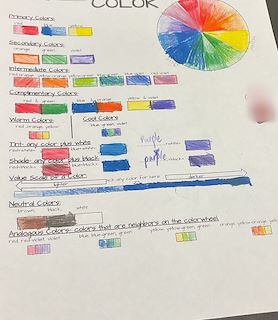 COLOR
Primary Colors:
red blue yellow
Secondary Colors:
orange green violet
Intermediate Colors:
Complimentary Colors:
red & green blue & orange yellow & violet
Warm Colors: Cool Colors:
red, orange, yellow blue, green, violet
Tint- any color plus white purple
red+white blue+white +white
Shade- any color plus black purple
red+black blue+black +black
Value Scale of a Color:
lighter pick any color for here darker
Neutral Colors:
brown, black, white
Analogous Colors- colors that are neighbors on the colorwheel.
red, red-violet, violet blue, blue-green, green yellow, yellow-green, green orange, yellow-orange, yellow